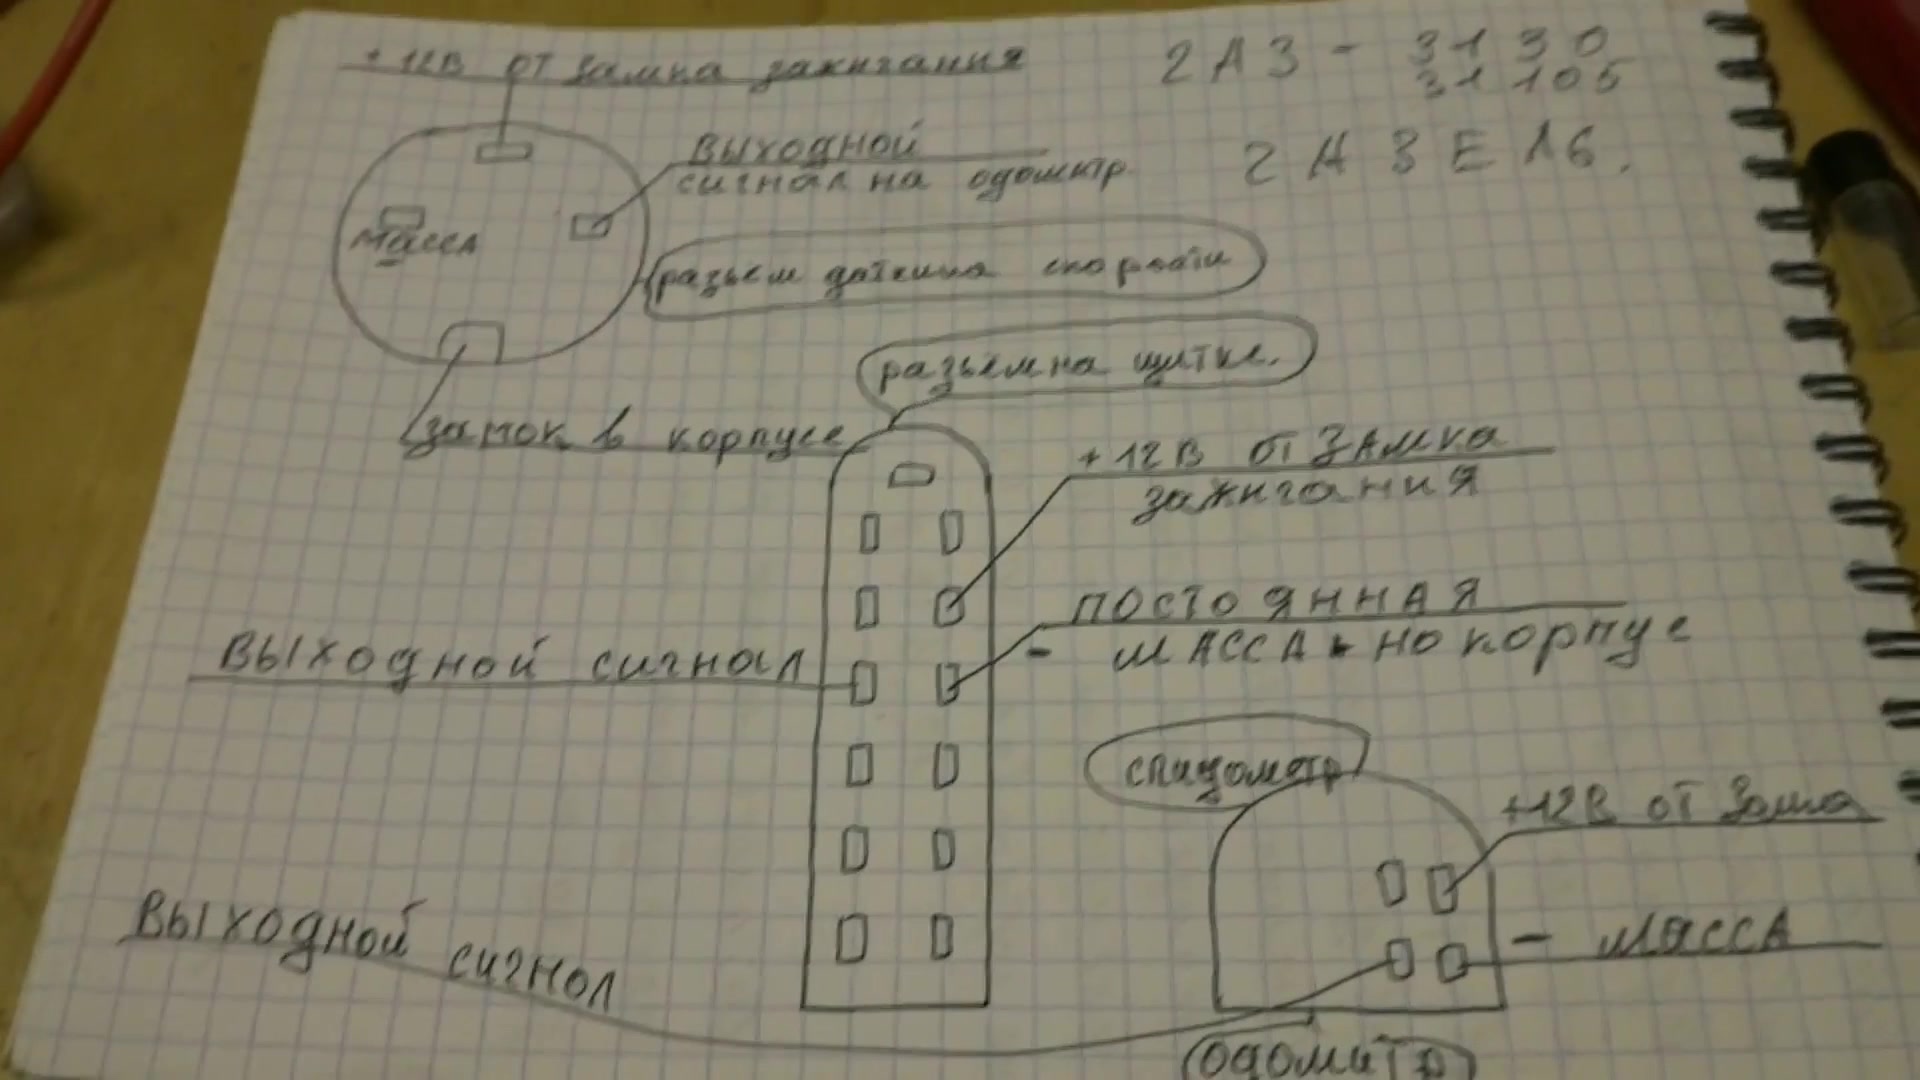 + 12В от замка зажигания
2АЗ - 3130
31105
2АЗЕ 16.
выходной
сигнал на одометр.
Масса
разъем датчика скорости
разъем на щитке.
замок в корпусе
+ 12В от Замка
зажигания
ПОСТОЯННАЯ
- МАССА на корпус
выходной сигнал
спидометр
+12В от Замка
- МАССА
Выходной сигнал
одомитр